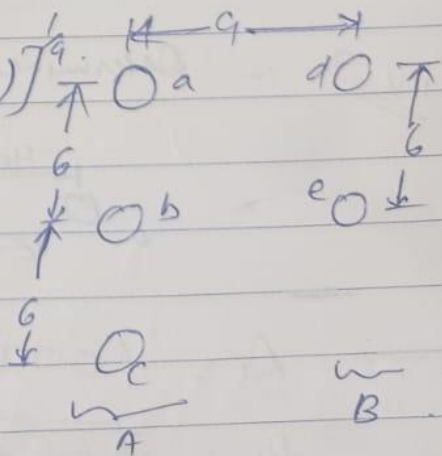 9
a
d
6
6
b
e
6
c
A
B